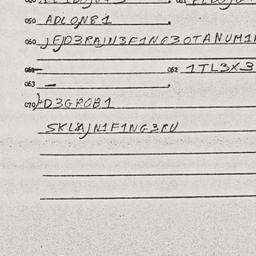 050 ADLON81
060 JEJD3RAJN3F1NG3OTANUM1
062 1TL3X3
063 —
070 D3GROB1
SKLAJN1F1NG3RU